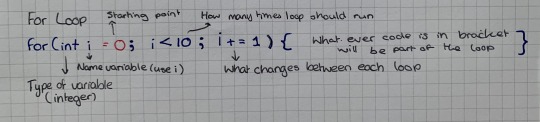 For Loop
Starting point
How many times loop should run
for (int i = 0; i < 10; i += 1) { What ever code is in bracket will be part of the loop }
Name variable (use i)
What changes between each loop
Type of variable
(integer)